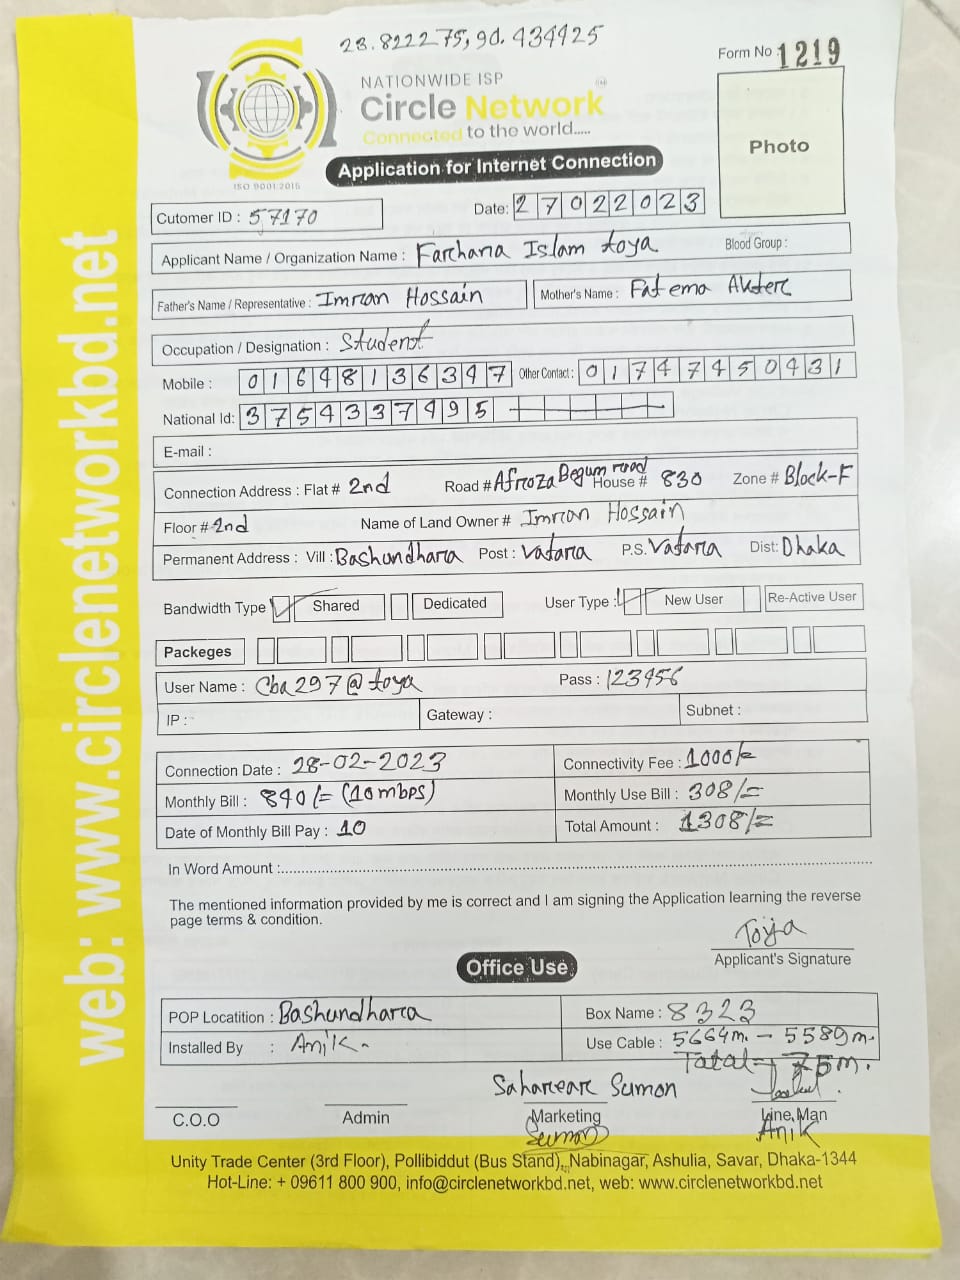 23.822275, 90.434425
Form No 1219
NATIONWIDE ISP
Circle Network
Connected to the world.....
ISO 9001:2015
Application for Internet Connection
Photo
Cutomer ID : 57170
Date: 27022023
Applicant Name / Organization Name : Farhana Islam toya Blood Group :
Father's Name / Representative : Imran Hossain Mother's Name : Fatema Akter
Occupation / Designation : Student
Mobile : 01648136347 Other Contact : 01747450431
National Id: 3754337495
E-mail :
Connection Address : Flat # 2nd Road # Afroza Begum road House # 830 Zone # Block-F
Floor # 2nd Name of Land Owner # Imran Hossain
Permanent Address : Vill : Bashundhara Post : Vatara P.S. Vatara Dist: Dhaka
Bandwidth Type Shared Dedicated User Type : New User Re-Active User
Packeges
User Name : Cba297@toya Pass : 123456
IP : Gateway : Subnet :
Connection Date : 28-02-2023 Connectivity Fee : 1000/=
Monthly Bill : 840/= (10mbps) Monthly Use Bill : 308/=
Date of Monthly Bill Pay : 10 Total Amount : 1308/=
In Word Amount :
The mentioned information provided by me is correct and I am signing the Application learning the reverse
page terms & condition.
Toya
Applicant's Signature
Office Use
POP Locatition : Bashundhara Box Name : 8323
Installed By : Anik Use Cable : 5664m. - 5589m.
Tatal= 75m.
Saharear Sumon
C.O.O Admin Marketing Line Man
Sumon Anik
Unity Trade Center (3rd Floor), Pollibiddut (Bus Stand), Nabinagar, Ashulia, Savar, Dhaka-1344
Hot-Line: + 09611 800 900, info@circlenetworkbd.net, web: www.circlenetworkbd.net
web: www.circlenetworkbd.net